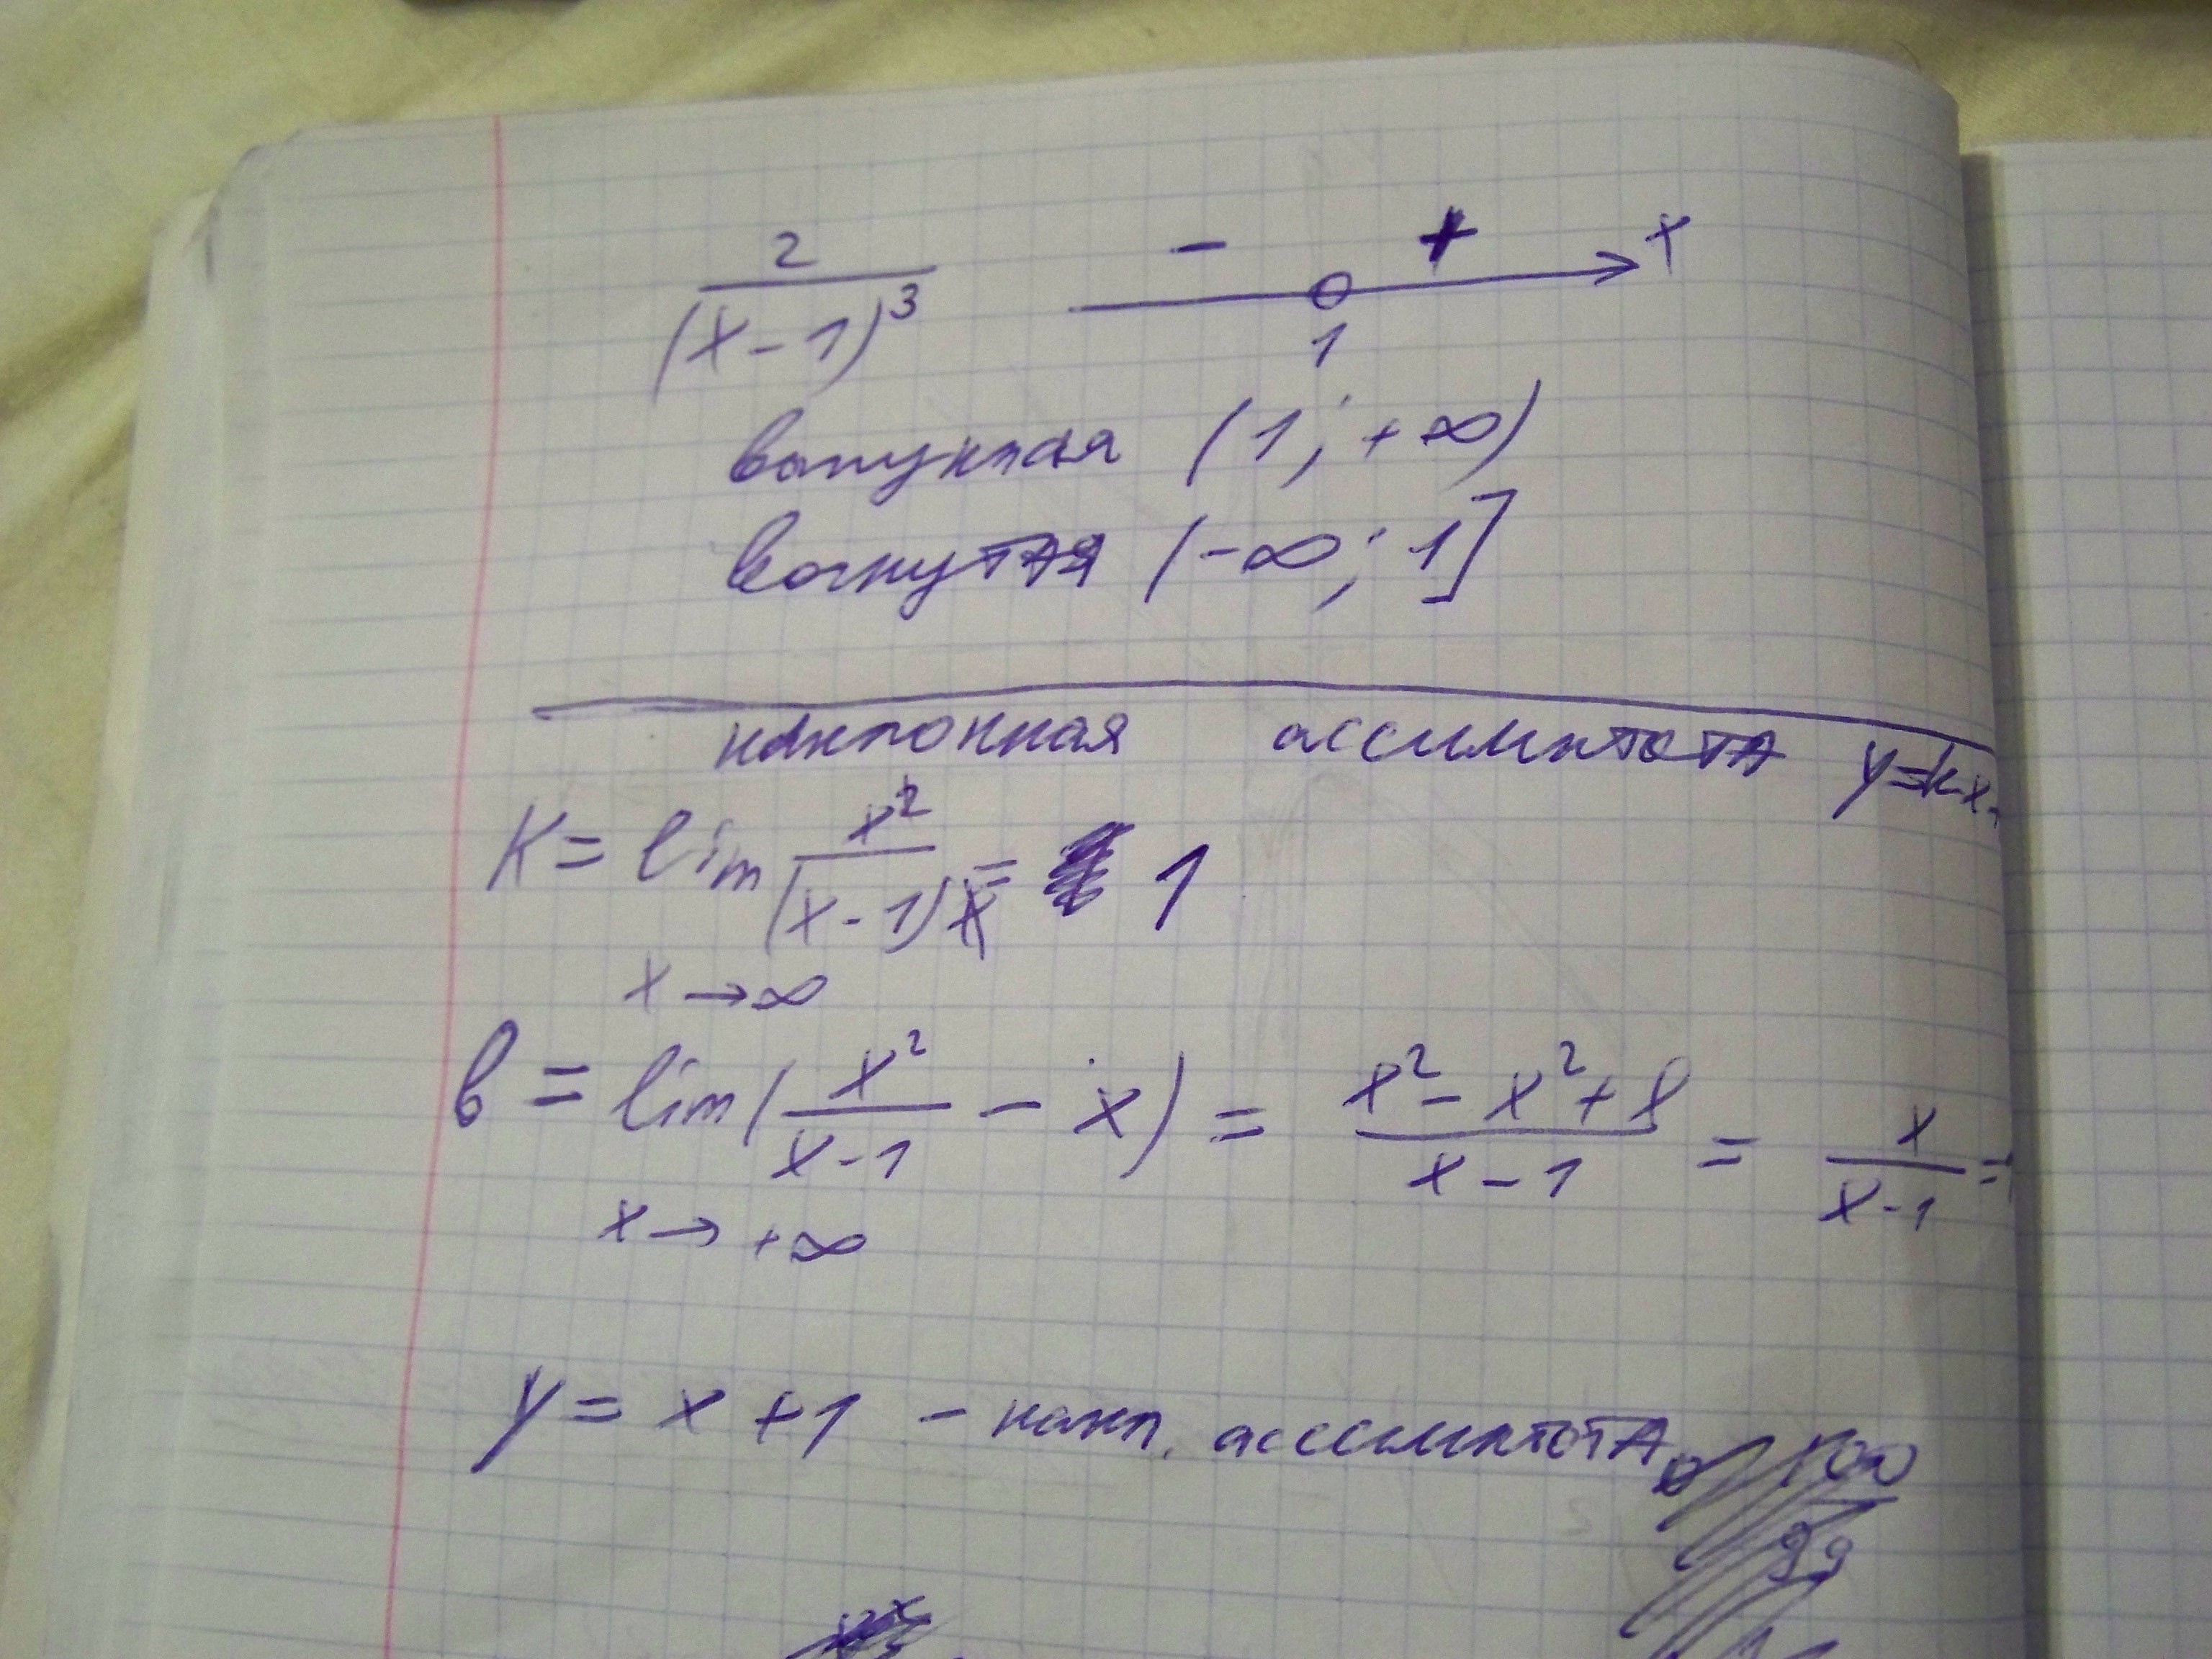 2/(x-1)³ - + x
1
выпуклая (1; +∞)
вогнутая (-∞; 1]
наклонная ассимптота y=kx
K = lim x²/((x-1)x) = 1
x→∞
b = lim(x²/(x-1) - x) = (x²-x²+x)/(x-1) = x/(x-1) =
x→+∞
y = x+1 - накл. ассимптота